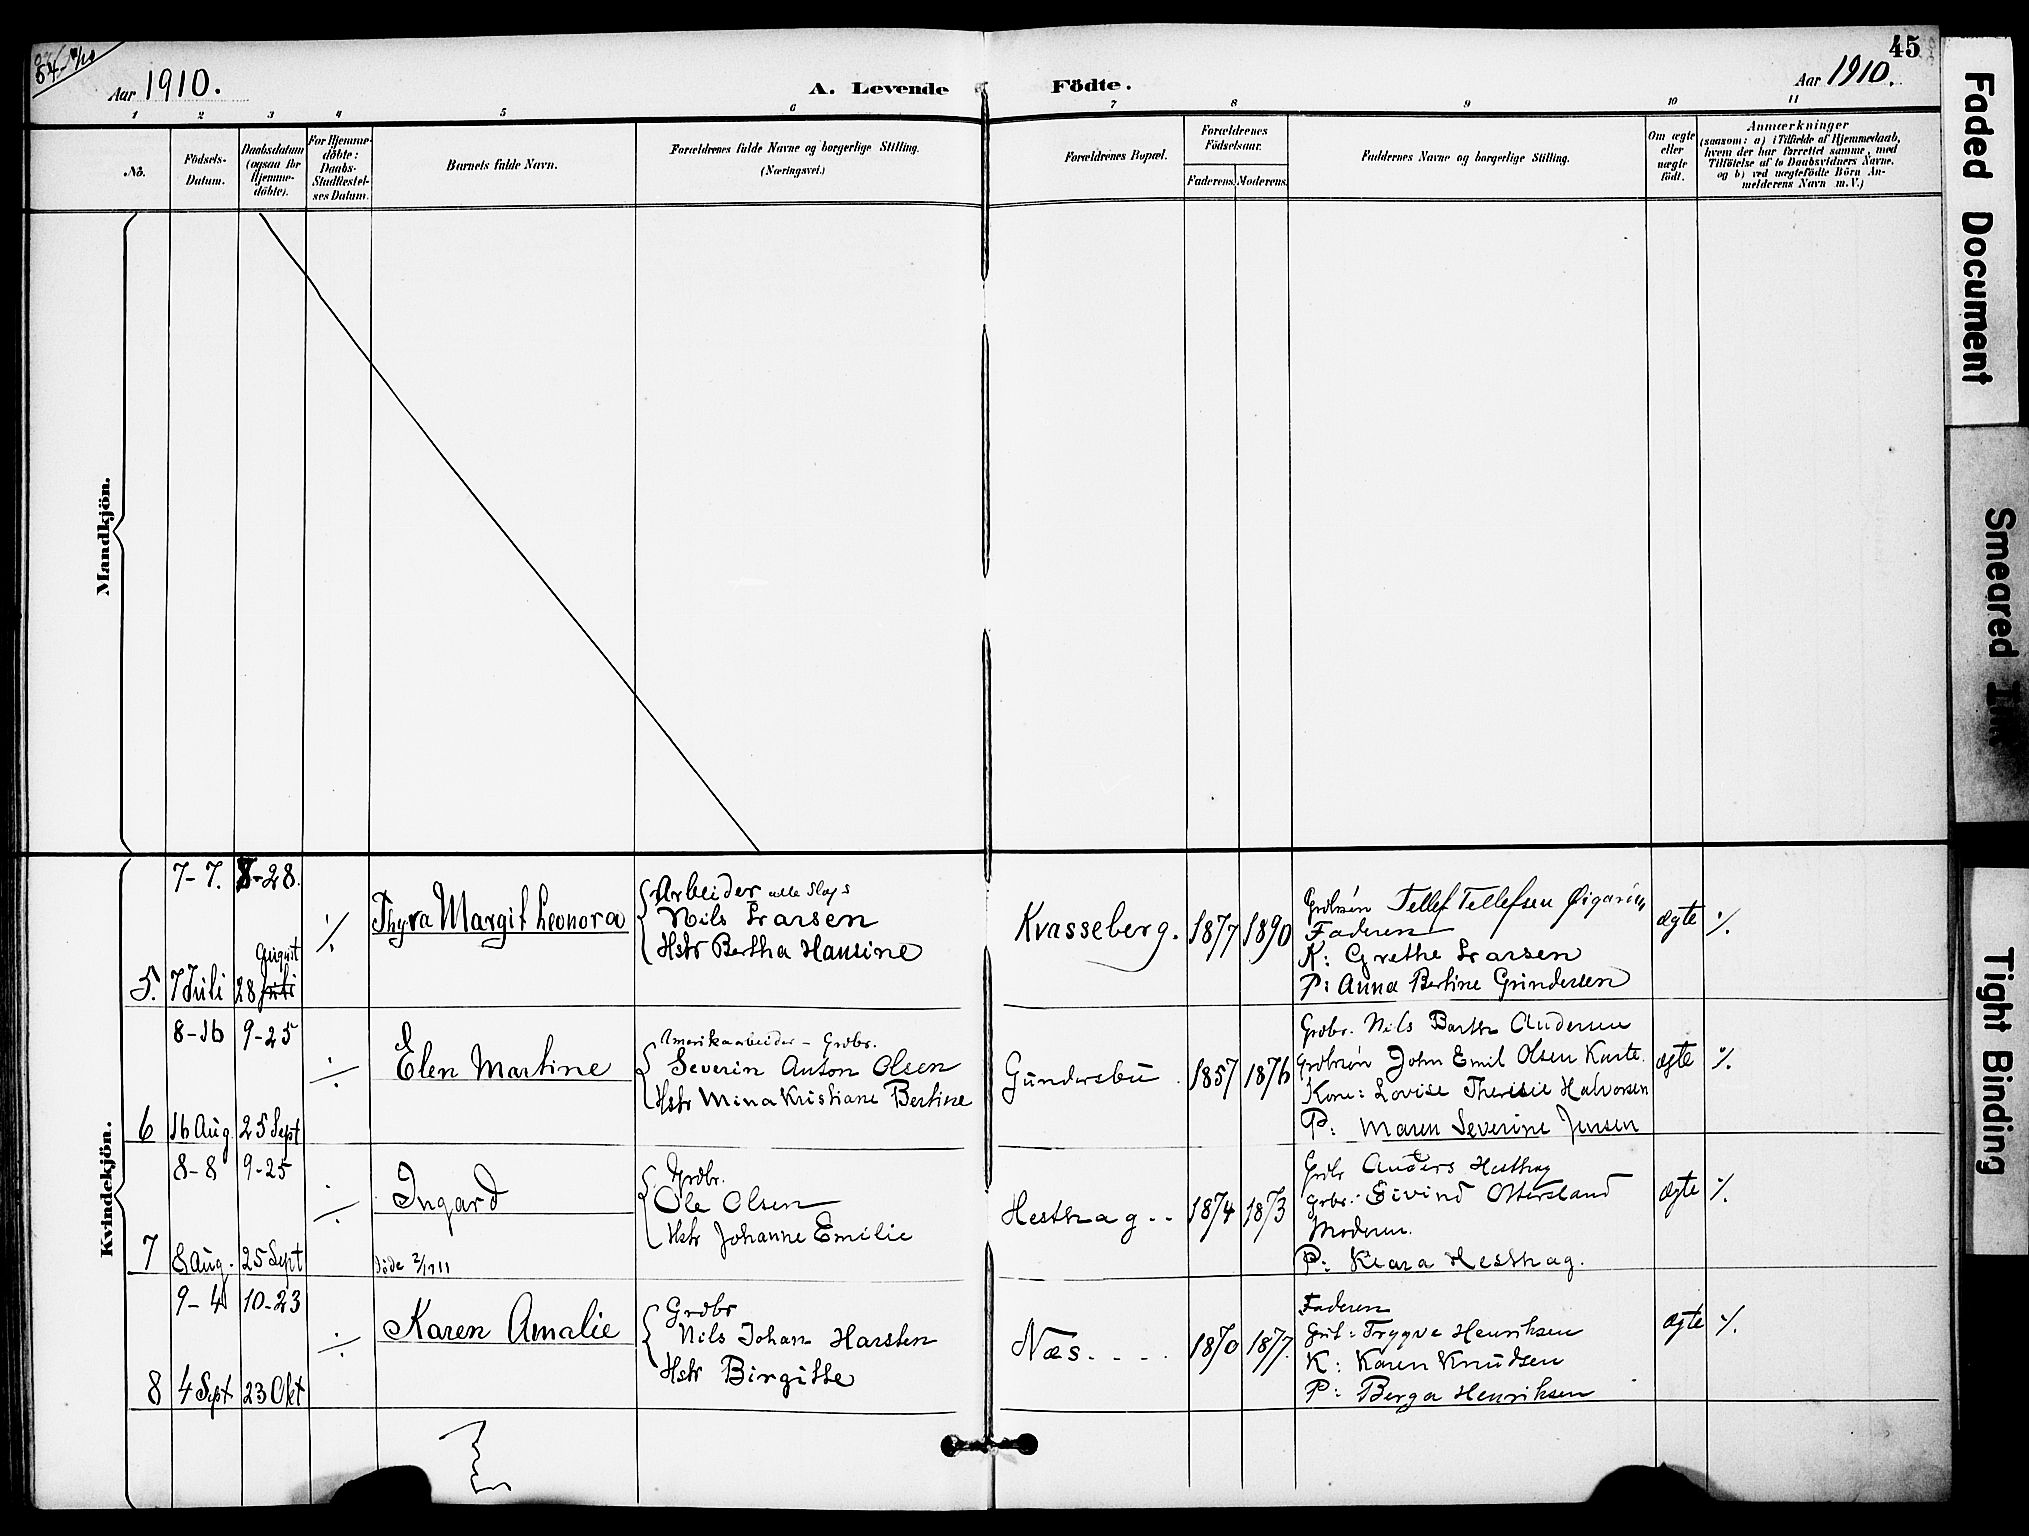 Aar 1910.
A. Levende Födte.
45
Aar 1910.
1 2 3 4 5 6 7 8 9 10 11
No.
Födsels-
Datum.
Daabsdatum
(ogsaa for
Hjemme-
döbte).
For Hjemme-
döbte:
Daabs-
Stadfæstel-
ses Datum.
Barnets fulde Navn.
Forældrenes fulde Navne og borgerlige Stilling.
(Næringsvei.)
Forældrenes Bopæl.
Forældrenes
Födselsaar.
Faderens. Moderens.
Faddernes Navne og borgerlige Stilling.
Om ægte
eller
uægte
födt.
Anmærkninger
(saasom: a) i Tilfælde af Hjemmedaab,
hvem der har forrettet samme, med
Tilföielse af to Daabsvidners Navne,
og b) ved uægtefödte Börn An-
melderens Navn m.V.)
Mandkjön.
Kvindekjön.
7-7. 8-28.
5. 7 Juli 28 August Juli
÷
Thyra Margit Leonora
Arbeider alle Slags
Nils Larsen
Hstr Bertha Hansine
Kvasseberg.
1877 1890
Grdbrsön Tellef Tellefsen
Faderen
K: Grethe Larsen
P: Anna Bertine Grindersen
ægte ./.
8-16 9-25
6 16 Aug 25 Sept
÷
Elen Martine
Amerikaarbeider - Grdbr.
Severin Anton Olsen
Hstr Mina Kristiane Bertine
Gundersbu
1857 1876
Grdbr. Nils Barth Andersen
Grdbrsön John Emil Olsen
Kone: Lovise Theresie Halvorsen
P: Maren Severine Jensen
ægte ./.
8-8 9-25
7 8 Aug. 25 Sept
÷
Ingard
Grdbr.
Ole Olsen
Hstr Johanne Emilie
Hesthag..
1874 1873
Grdbr Anders Hesthag
Grbr. Eivind Ottersland
Moderen.
P: Klara Hesthag.
ægte ./.
9-4 10-23
8 4 Sept 23 Okt
÷
Karen Amalie
Grdbr
Nils Johan Harsten
Hstr Birgitte
Næs. - - .
1870 1877.
Faderen
Trygve Henriksen
K: Karen Knudsen
P: Berga Henriksen
ægte ./.
Faded Document
Smeared Ink
Tight Binding